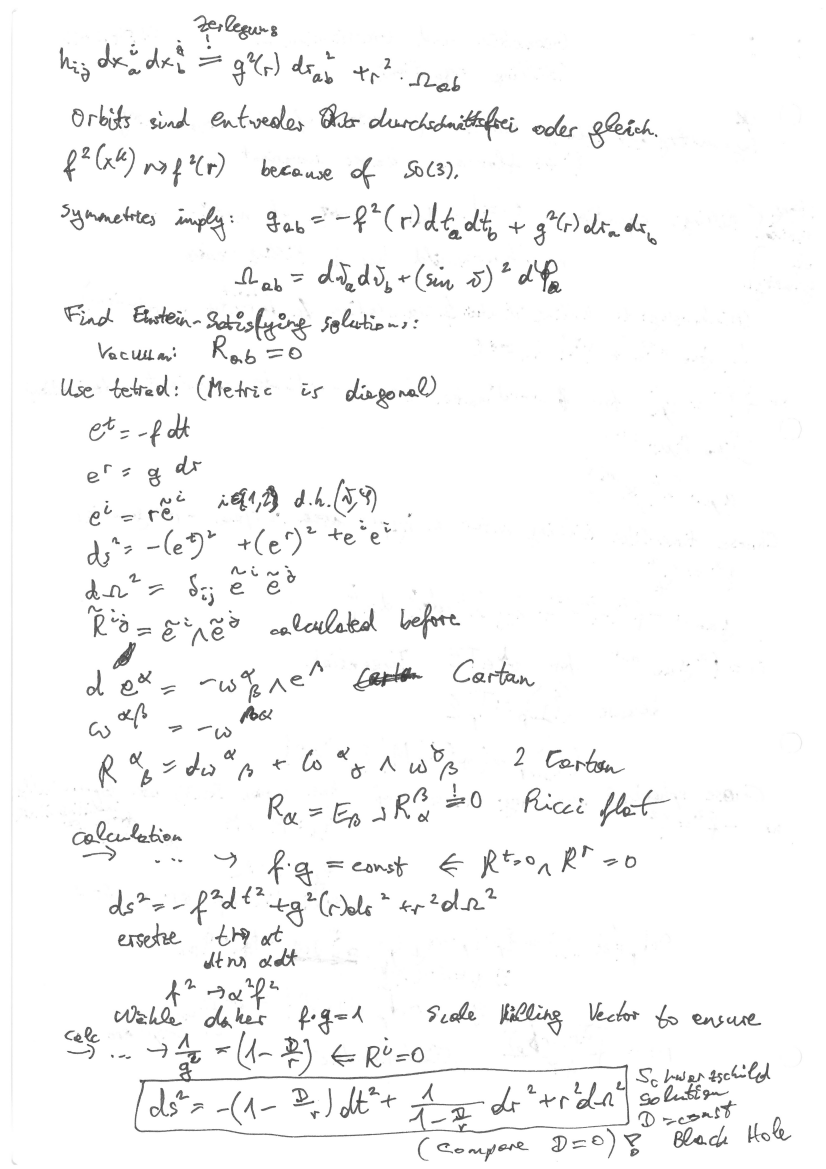 Zerlegung
h_{ij} dx_a^i dx_b^j =! g²(r) dr_{ab}² + r² · Ω_{ab}
Orbits sind entweder durchschnittsfrei oder gleich.
f²(x^k) ⇝ f²(r) because of SO(3).
Symmetries imply: g_{ab} = -f²(r) dt_a dt_b + g²(r) dr_a dr_b
Ω_{ab} = dϑ_a dϑ_b + (sin ϑ)² dφ_a
Find Einstein-Satisfying solutions:
Vacuum: R_{ab} = 0
Use tetrad: (Metric is diagonal)
e^t = -f dt
e^r = g dr
e^i = r ẽ^i i∈{1,2} d.h. (ϑ,φ)
ds² = -(e^t)² + (e^r)² + e^i e^i
dΩ² = δ_{ij} ẽ^i ẽ^j
R̃^{ij} = ẽ^i ∧ ẽ^j calculated before
d e^α = -ω^α_β ∧ e^β Cartan
ω^{αβ} = -ω^{βα}
R^α_β = dω^α_β + ω^α_γ ∧ ω^γ_β 2 Cartan
R_α = E_β ⌟ R^β_α =! 0 Ricci flat
calculation
→ ... → f·g = const ⇐ R^t=0 ∧ R^r = 0
ds² = -f²dt² + g²(r)dr² + r²dΩ²
ersetze t ↦ αt
dt ⇝ αdt
f² → α²f²
Wähle daher f·g=1 Scale Killing Vector to ensure
calc
→ ... → 1/g² = (1 - D/r) ⇐ R^i = 0
ds² = -(1 - D/r) dt² + 1/(1 - D/r) dr² + r²dΩ²
Schwarzschild
solution
D = const
(compare D=0) ! Black Hole